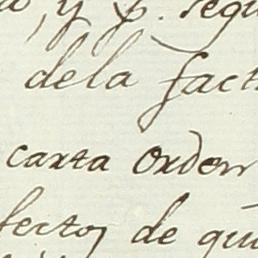 , y p. segu
dela fact
carta orden
fectos de qu